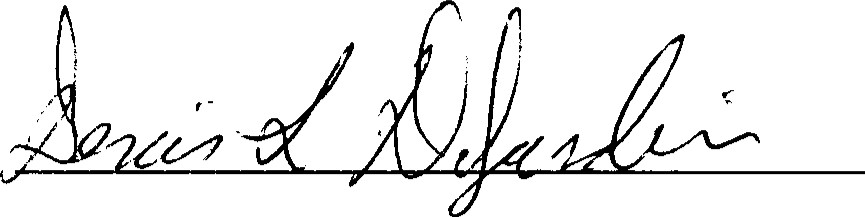 Denis L Dejardin